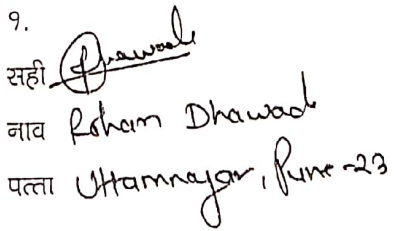 १.
सही Dhawade
नाव Rohan Dhawad
पत्ता Uttamnagar, Pune-23